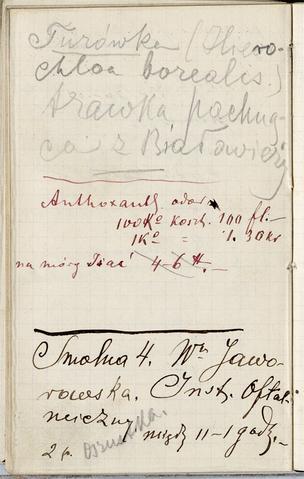 Turówka (Hiero-
chloa borealis.)
trawka pachną-
ca z Białowieży
Anthoxanth. odor.
100 Ko koszt. 100 fl.—
1 Ko = 1.30 kr
na mórg siać 4-6 ℔.—
Smolna 4. Wna Jawo-
rowska. Inst. Oftal-
miczny. międz. 11-1 godz.—
2 p.